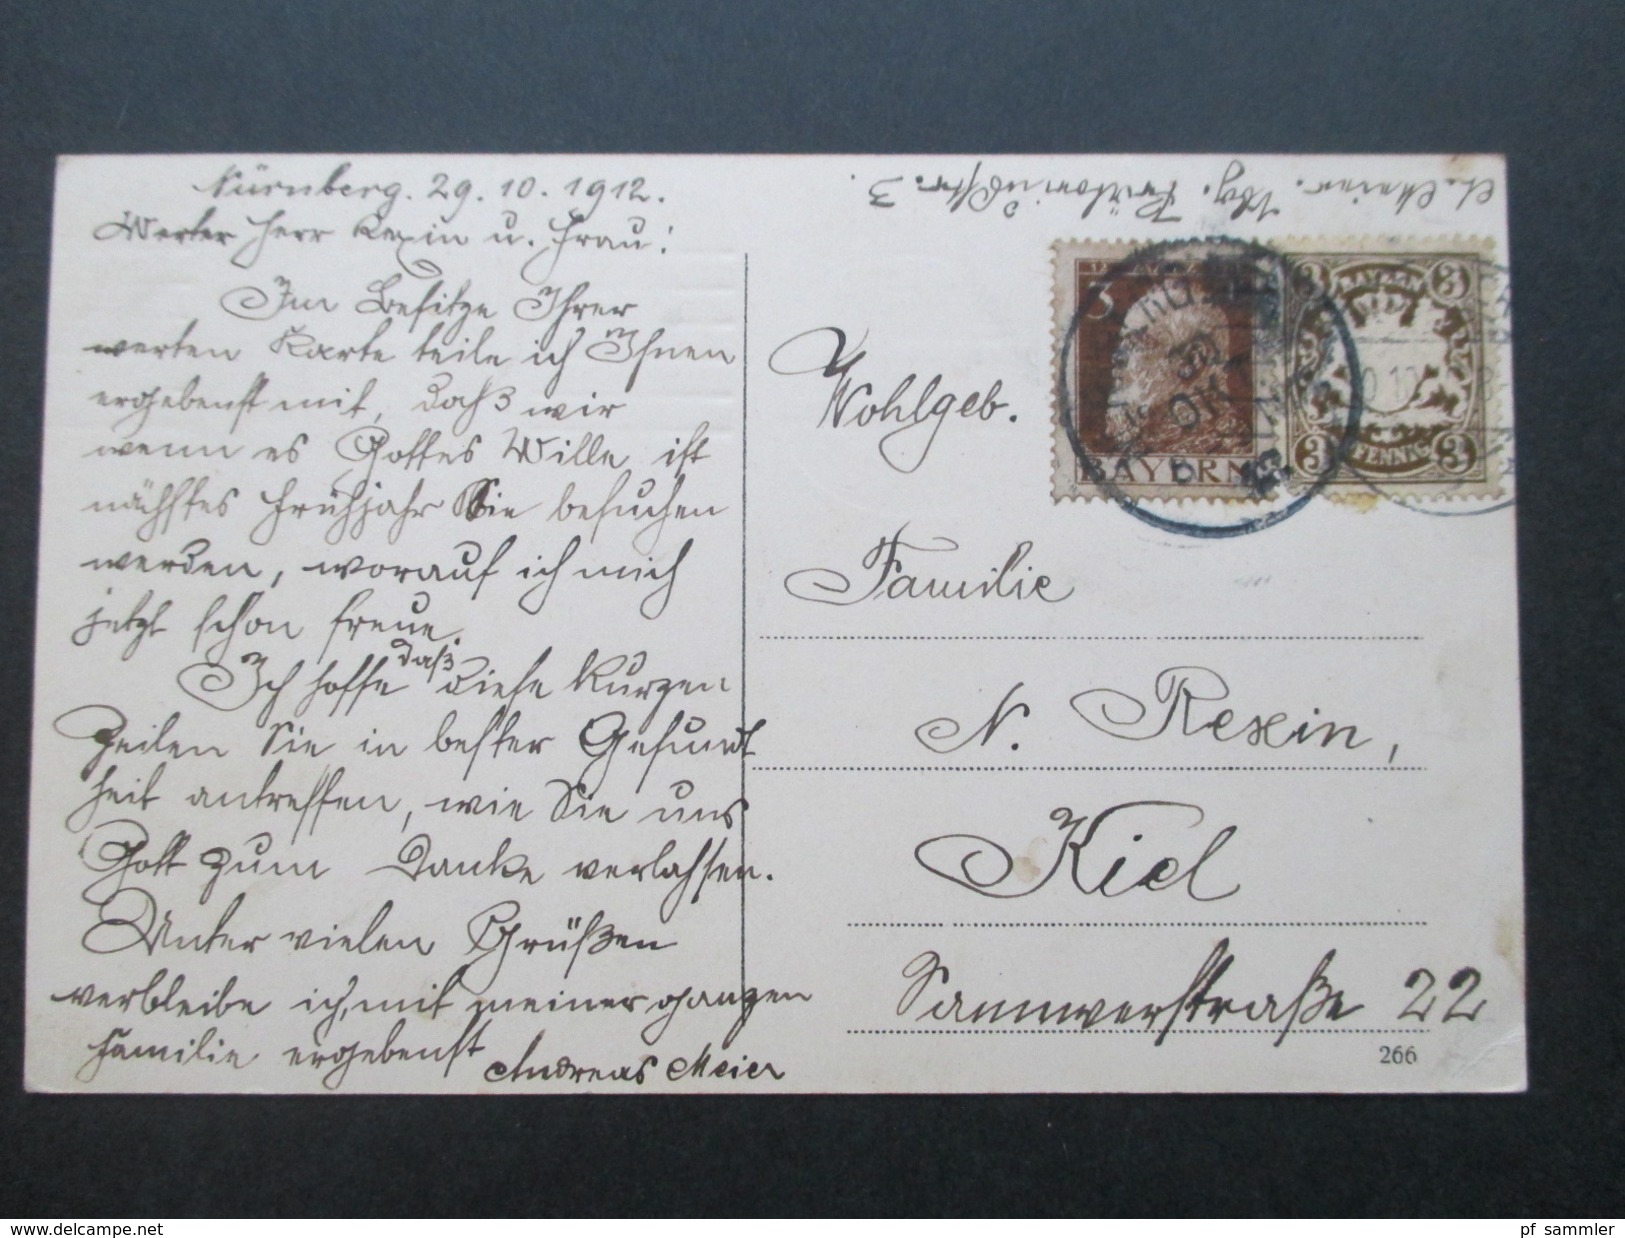 Nürnberg. 29. 10. 1912.
Werter Herr Rexin u. Frau!
Im Besitze Ihrer
werten Karte teile ich Ihnen
ergebenst mit, daß wir
wenn es Gottes Wille ist
nächstes Frühjahr Sie besuchen
werden, worauf ich mich
jetzt schon freue.
Ich hoffe daß diese kurzen
Zeilen Sie in bester Gesund
heit antreffen, wie Sie uns
Gott zum Danke verlassen.
Unter vielen Grüßen
verbleibe ich, mit meiner ganzen
Familie ergebenst
Andreas Meier
A. Meier. Nbg.
3.
3
BAYERN
BAYERN
3 3
3 PFENNIG 3
30
OKT
Wohlgeb.
Familie
N. Rexin,
Kiel
Samwerstraße 22
266
www.delcampe.net
pf_sammler